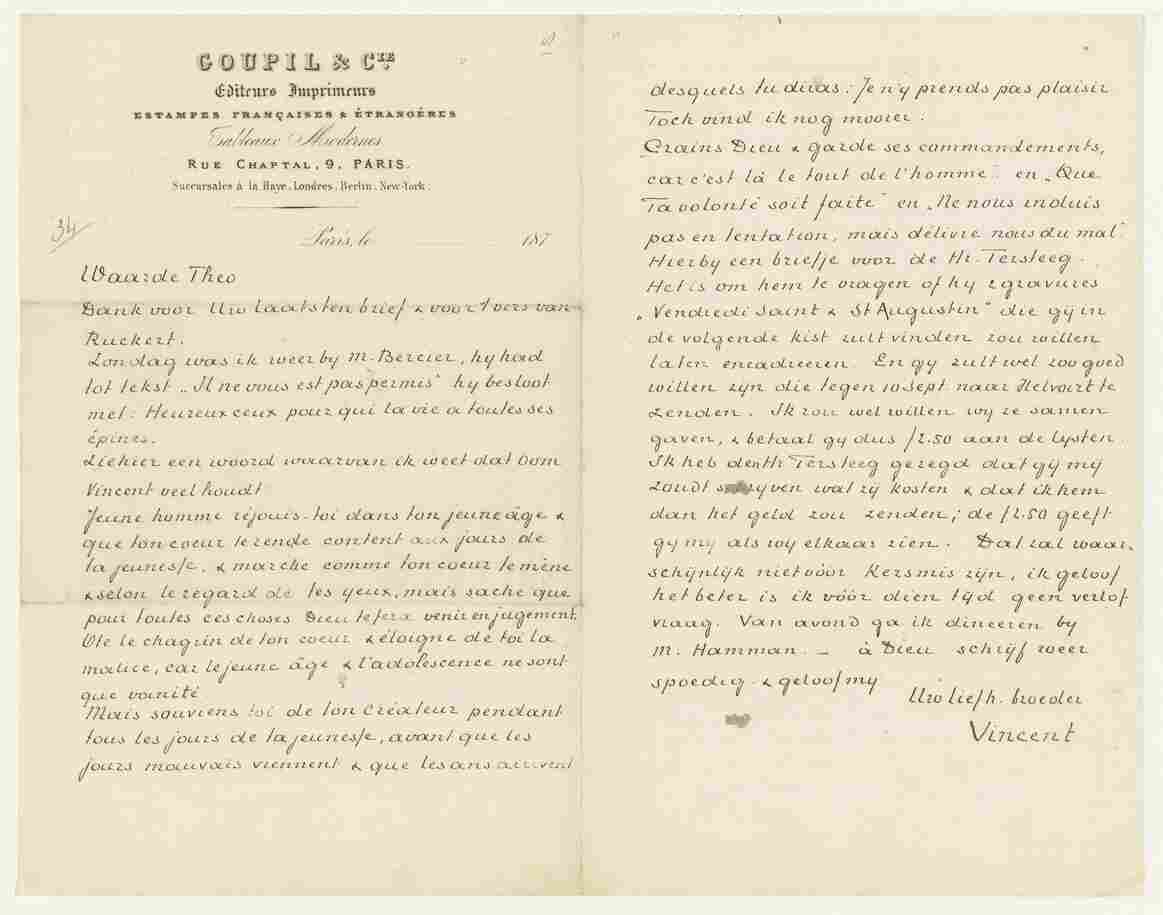 GOUPIL & CIE
Editeurs Imprimeurs
ESTAMPES FRANÇAISES & ÉTRANGÈRES
Tableaux Modernes
RUE CHAPTAL, 9, PARIS.
Succursales à la Haye, Londres, Berlin, New-York.
34
Paris, le 187
Waarde Theo
Dank voor Uw laatsten brief & voor 't vers van
Ruckert.
Zondag was ik weer by M. Bercier, hy had
tot tekst „Il ne vous est pas permis" hy besloot
met: Heureux ceux pour qui la vie a toutes ses
épines.
Ziehier een woord waarvan ik weet dat Oom
Vincent veel houdt
Jeune homme réjouis-toi dans ton jeune âge &
que ton coeur te rende content aux jours de
ta jeunesse, & marche comme ton coeur te mène
& selon le regard de tes yeux, mais sache que
pour toutes ces choses Dieu te fera venir en jugement.
Ote le chagrin de ton coeur & éloigne de toi la
malice, car le jeune âge & l'adolescence ne sont
que vanité
Mais souviens toi de ton Créateur pendant
tous les jours de ta jeunesse, avant que les
jours mauvais viennent & que les ans arrivent
desquels tu diras: Je n'y prends pas plaisir
Toch vind ik nog mooier:
Crains Dieu & garde ses commandements,
car c'est là le tout de l'homme" en „Que
Ta volonté soit faite" en „Ne nous induis
pas en tentation, mais délivre nous du mal".
Hierby een briefje voor de Hr. Tersteeg.
Het is om hem te vragen of hy 2 gravures
„Vendredi Saint & St Augustin" die gij in
de volgende kist zult vinden zou willen
laten encadreeren. En gy zult wel zoo goed
willen zyn die tegen 10 Sept naar Helvoirt te
zenden. Ik zou wel willen wy ze samen
gaven, & betaal gy dus ƒ2.50 aan de lysten.
Ik heb den Hr Tersteeg gezegd dat gij my
zoudt schryven wat zij kosten & dat ik hem
dan het geld zou zenden; de ƒ2.50 geeft
gy my als wy elkaar zien. Dat zal waar-
schijnlijk niet vóór Kersmis zijn, ik geloof
het beter is ik vóór dien tijd geen verlof
vraag. Van avond ga ik dineeren by
M. Hamman. – à Dieu schrijf weer
spoedig & geloof my
Uw liefh. broeder
Vincent